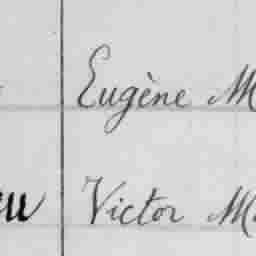 Eugène M
eu Victor M